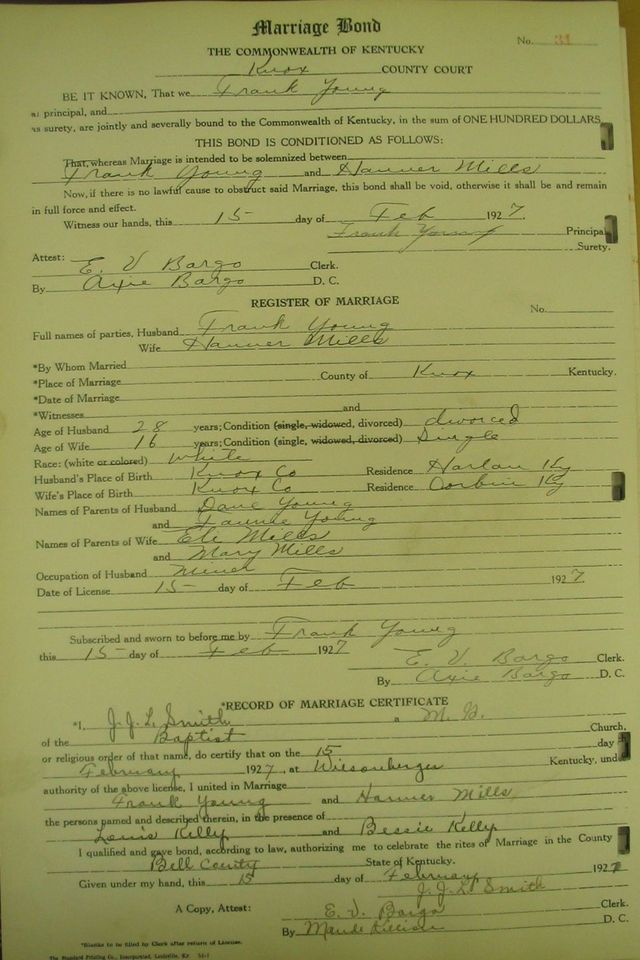 Marriage Bond
No. 31
THE COMMONWEALTH OF KENTUCKY
Knox COUNTY COURT
BE IT KNOWN, That we Frank Young
as principal, and
as surety, are jointly and severally bound to the Commonwealth of Kentucky, in the sum of ONE HUNDRED DOLLARS
THIS BOND IS CONDITIONED AS FOLLOWS:
That, whereas Marriage is intended to be solemnized between
Frank Young and Hanner Mills
Now, if there is no lawful cause to obstruct said Marriage, this bond shall be void, otherwise it shall be and remain
in full force and effect.
Witness our hands, this 15 day of Feb 1927.
Frank Young Principal
Surety.
Attest: E. V Bargo Clerk.
By Axie Bargo D. C.
REGISTER OF MARRIAGE
No.
Full names of parties, Husband Frank Young
Wife Hanner Mills
*By Whom Married
*Place of Marriage County of Knox Kentucky.
*Date of Marriage
*Witnesses and
Age of Husband 28 years; Condition (single, widowed, divorced) divorced
Age of Wife 16 years; Condition (single, widowed, divorced) Single
Race: (white or colored) white
Husband's Place of Birth Knox Co Residence Harlan Ky
Wife's Place of Birth Knox Co Residence Corbin Ky
Names of Parents of Husband Dave Young
and Fannie Young
Names of Parents of Wife Ele Mills
and Mary Mills
Occupation of Husband Miner
Date of License 15 day of Feb 1927
Subscribed and sworn to before me by Frank Young
this 15 day of Feb 1927
E. V. Bargo Clerk.
By Axie Bargo D. C.
*RECORD OF MARRIAGE CERTIFICATE
*I, J. J. L. Smith a M. G.
of the Baptist Church,
or religious order of that name, do certify that on the 15 day
February 1927, at Wilsonberger Kentucky, und
authority of the above license, I united in Marriage
Frank Young and Hanner Mills
the persons named and described therein, in the presence of
Louis Kelly and Bessie Kelly
I qualified and gave bond, according to law, authorizing me to celebrate the rites of Marriage in the County
Bell County State of Kentucky.
Given under my hand, this 15 day of February 1927
J. J. L. Smith
A Copy, Attest: E. V. Bargo Clerk.
By Maude Killion D. C.
*Blanks to be filled by Clerk after return of License.
The Standard Printing Co., Incorporated, Louisville, Ky.